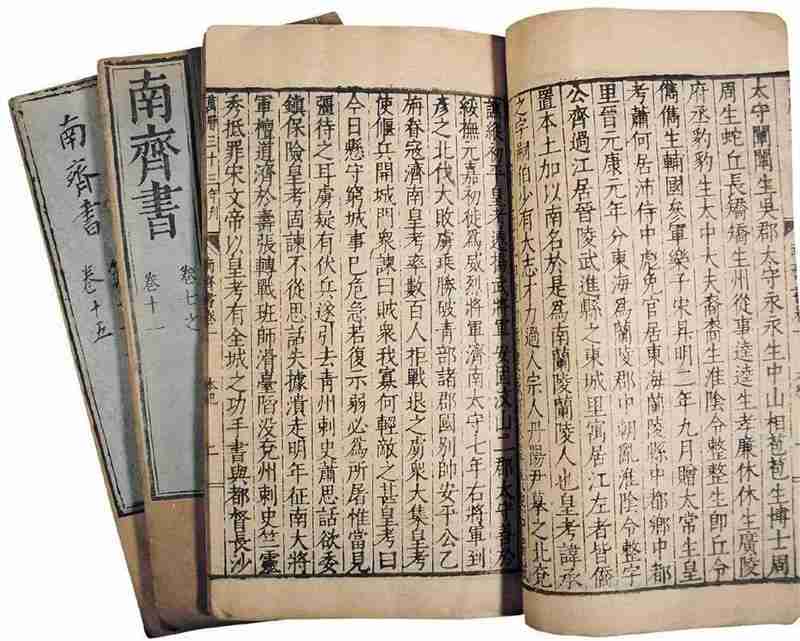 太守闡闡生吳郡太守永永生中山相苞苞生博士周
周生蛇丘長矯矯生州從事逵逵生孝廉休休生廣陵
府丞豹豹生太中大夫裔裔生淮陰令整整生即丘令
儁儁生輔國參軍樂子宋昇明二年九月贈太常生皇
考蕭何居沛侍中彪免官居東海蘭陵縣中都鄉中都
里晉元康元年分東海爲蘭陵郡中朝亂淮陰令整字
公齊過江居晉陵武進縣之東城里寓居江左者皆僑
置本土加以南名於是爲南蘭陵蘭陵人也皇考諱承
之字嗣伯少有大志才力過人宗人丹陽尹摹之北兗
譙縱初平皇考遷揚武將軍安固汶山二郡太守善於
綏撫元嘉初徙爲威烈將軍濟南太守七年右將軍到
彥之北伐大敗虜乘勝破青部諸郡國別帥安平公乙
旃眷寇濟南皇考率數百人拒戰退之虜衆大集皇考
使偃兵開城門衆諫曰賊衆我寡何輕敵之甚皇考曰
今日懸守窮城事已危急若復示弱必爲所屠惟當見
彊待之耳虜疑有伏兵遂引去青州刺史蕭思話欲委
鎮保險皇考固諫不從思話失據潰走明年征南大將
軍檀道濟於壽張轉戰班師滑臺陷没兗州刺史竺靈
秀抵罪宋文帝以皇考有全城之功手書與都督長沙
三十三年刊
南齊書卷一
本紀
南齊書
卷七之
卷十一
南齊書
卷十五